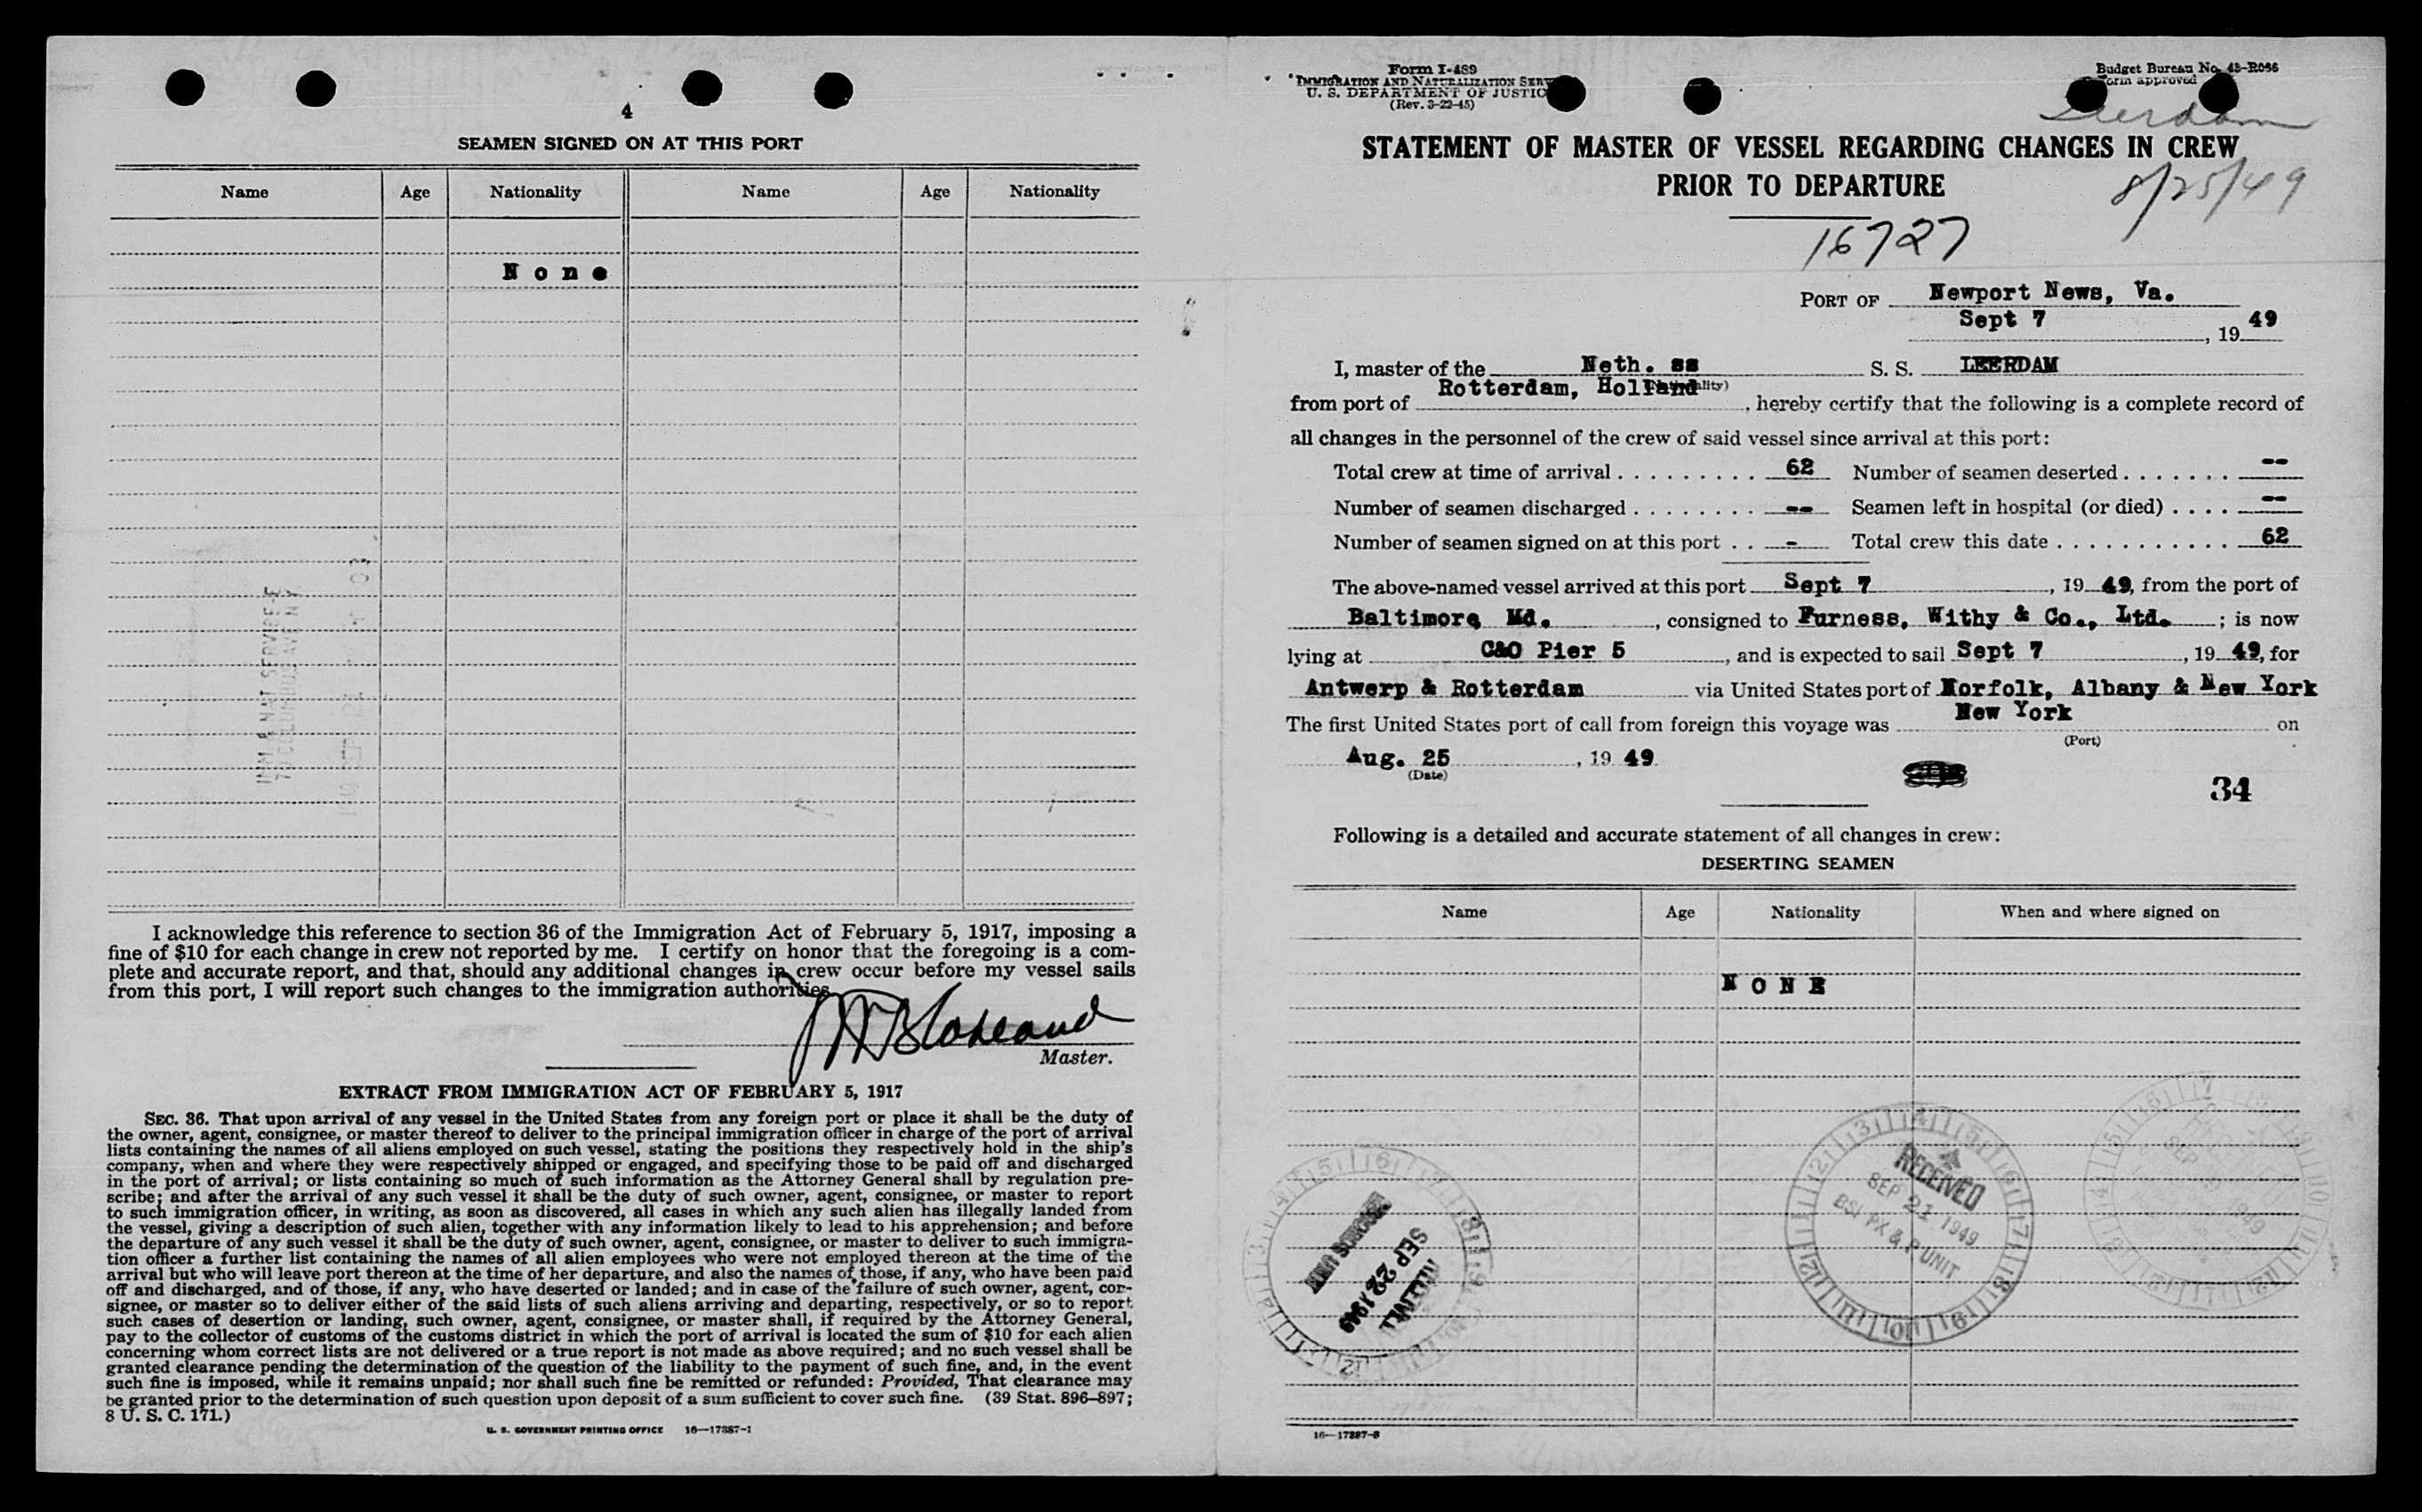 4
SEAMEN SIGNED ON AT THIS PORT
Name Age Nationality Name Age Nationality
None
I acknowledge this reference to section 36 of the Immigration Act of February 5, 1917, imposing a
fine of $10 for each change in crew not reported by me. I certify on honor that the foregoing is a com-
plete and accurate report, and that, should any additional changes in crew occur before my vessel sails
from this port, I will report such changes to the immigration authorities
Master.
EXTRACT FROM IMMIGRATION ACT OF FEBRUARY 5, 1917
SEC. 36. That upon arrival of any vessel in the United States from any foreign port or place it shall be the duty of
the owner, agent, consignee, or master thereof to deliver to the principal immigration officer in charge of the port of arrival
lists containing the names of all aliens employed on such vessel, stating the positions they respectively hold in the ship's
company, when and where they were respectively shipped or engaged, and specifying those to be paid off and discharged
in the port of arrival; or lists containing so much of such information as the Attorney General shall by regulation pre-
scribe; and after the arrival of any such vessel it shall be the duty of such owner, agent, consignee, or master to report
to such immigration officer, in writing, as soon as discovered, all cases in which any such alien has illegally landed from
the vessel, giving a description of such alien, together with any information likely to lead to his apprehension; and before
the departure of any such vessel it shall be the duty of such owner, agent, consignee, or master to deliver to such immigra-
tion officer a further list containing the names of all alien employees who were not employed thereon at the time of the
arrival but who will leave port thereon at the time of her departure, and also the names of those, if any, who have been paid
off and discharged, and of those, if any, who have deserted or landed; and in case of the failure of such owner, agent, con-
signee, or master so to deliver either of the said lists of such aliens arriving and departing, respectively, or so to report
such cases of desertion or landing, such owner, agent, consignee, or master shall, if required by the Attorney General,
pay to the collector of customs of the customs district in which the port of arrival is located the sum of $10 for each alien
concerning whom correct lists are not delivered or a true report is not made as above required; and no such vessel shall be
granted clearance pending the determination of the question of the liability to the payment of such fine, and, in the event
such fine is imposed, while it remains unpaid; nor shall such fine be remitted or refunded: Provided, That clearance may
be granted prior to the determination of such question upon deposit of a sum sufficient to cover such fine. (39 Stat. 896–897;
8 U. S. C. 171.)
U. S. GOVERNMENT PRINTING OFFICE 16—17387-1
Form I-489
IMMIGRATION AND NATURALIZATION SERV
U. S. DEPARTMENT OF JUSTIC
(Rev. 3-22-45)
Budget Bureau No. 43-R056
orm approved
Leerdam
STATEMENT OF MASTER OF VESSEL REGARDING CHANGES IN CREW
PRIOR TO DEPARTURE
8/25/49
16727
PORT OF Newport News, Va.
Sept 7, 1949
I, master of the Neth. ss S. S. LEERDAM
from port of Rotterdam, Holland, hereby certify that the following is a complete record of
all changes in the personnel of the crew of said vessel since arrival at this port:
Total crew at time of arrival . . . . . . . . . . 62 Number of seamen deserted . . . . . . . --
Number of seamen discharged . . . . . . . . -- Seamen left in hospital (or died) . . . . --
Number of seamen signed on at this port . . - Total crew this date . . . . . . . . . . . . 62
The above-named vessel arrived at this port Sept 7, 1949, from the port of
Baltimore Md., consigned to Furness, Withy & Co., Ltd.; is now
lying at C&O Pier 5, and is expected to sail Sept 7, 1949, for
Antwerp & Rotterdam via United States port of Norfolk, Albany & New York
The first United States port of call from foreign this voyage was New York on
(Port)
Aug. 25, 1949
(Date)
34
Following is a detailed and accurate statement of all changes in crew:
DESERTING SEAMEN
Name Age Nationality When and where signed on
NONE
RECEIVED
SEP 21 1949
BSI PX & P UNIT
SEP 22 1949
16—17387-3